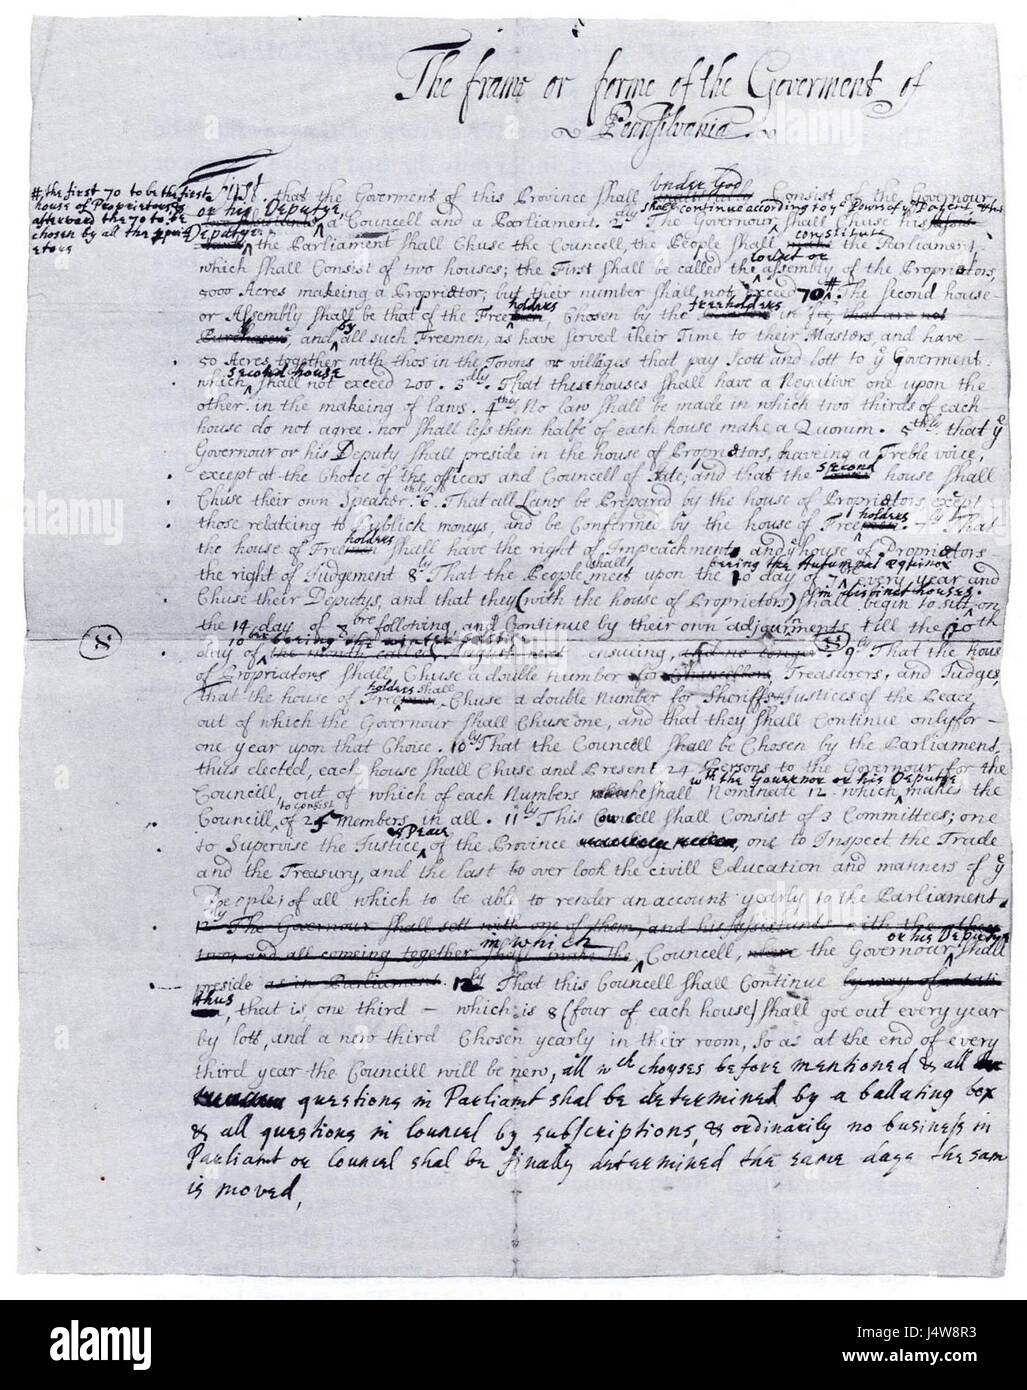 The frame or forme of the Goverment of
Pensilvania
# the first 70 to be the first
house of Proprietors &
afterward the 70 to be
chosen by all the propri
etors
under God
First that the Goverment of this Province shall Consist of the Governour
or his Deputye, shall continue according to ye Powers of ye Patent, & his
a Councell and a Parliament. 2dly The Governour shall Chuse his
Deputye, constitute
the Parliament shall Chuse the Councell, the People shall the Parliament,
lower or
which shall Consist of two houses; the First shall be called the assembly of the Proprietors,
5000 Acres makeing a Proprietor; but their number shall not exceed 70#. The Second house
holders freeholders
or Assembly shall be that of the Freemen, Chosen by the in fee, that are not
by
Purchasers, and all such Freemen, as have served their Time to their Masters, and have
50 Acres together with thos in the Towns or villages that pay Scott and lott to ye Goverment.
second house
which shall not exceed 200. 3dly. That these houses shall have a Negative one upon the
other in the makeing of laws. 4thly No law shall be made in which two thirds of each
house do not agree. nor shall less then halfe of each house make a Quorum. 5thly that ye
Governour or his Deputy shall preside in the house of Proprietors, haveing a Treble voice,
second
except at the Choice of the officers and Councell of State; and that the house shall
Chuse their own Speaker. 6ly. That all Laws be Prepared by the house of Proprietors except
holders
those relateing to Publick moneys, and be Confirmed by the house of Freemen. 7ly That
holders
the house of Freemen shall have the right of Impeachments, and ye house of Proprietors
shall being the Autumnal equinox
the right of Judgement 8ly That the People meet upon the 10 day of 7bre every year and
in distinct houses.
Chuse their Deputys, and that they (with the house of Proprietors) shall begin to sitt on
the 14 day of 8bre following and Continue by their own adjournments till the 10th
10bre being the winter solstis
day of the month called August next ensuing, and no longer 9ly That the hous
of Proprietors shall Chuse a double number for Chancellors, Treasurers, and Judges,
holders shall
that the house of Freemen Chuse a double Number for Sheriffs & Justices of the Peace
out of which the Governour shall Chuse one, and that they shall Continue only for
one year upon that Choice. 10ly That the Councell shall be Chosen by the Parliament,
thus elected, each house shall Chuse and Present 24 Persons to the Governour, for the
wth the Governor or his Deputye
Councill, out of which of each Numbers he shall Nominate 12 which makes the
to consist
Councill of 25 Members in all. 11ly This Councell shall Consist of 3 Committees; one
& Peace
to Supervise the Justice of the Province one to Inspect the Trade
and the Treasury, and the last to over look the civill Education and manners of ye
People; of all which to be able to render an account yearly to the Parliament.
12ly The Governour shall sett with one of them, and his Assistants with the other
in which or his Deputye
two, and all comeing together shall make the Councell, where the Governour shall
preside as in Parliament. 12ly That this Councell shall Continue by way of
thus, that is, one third – which is 8 (four of each house) shall goe out every year
by lott, and a new third Chosen yearly in their room, so as at the end of every
third year the Councill will be new, all wch choyses before mentioned & all
questions in Parliamt shal be determined by a ballating box
& all questions in Councel by subscriptions, & ordinarily no business in
Parliamt or Councel shal be finally determined the same daye the sam
is moved,
alamy
alamy stock photo
J4W8R3
www.alamy.com